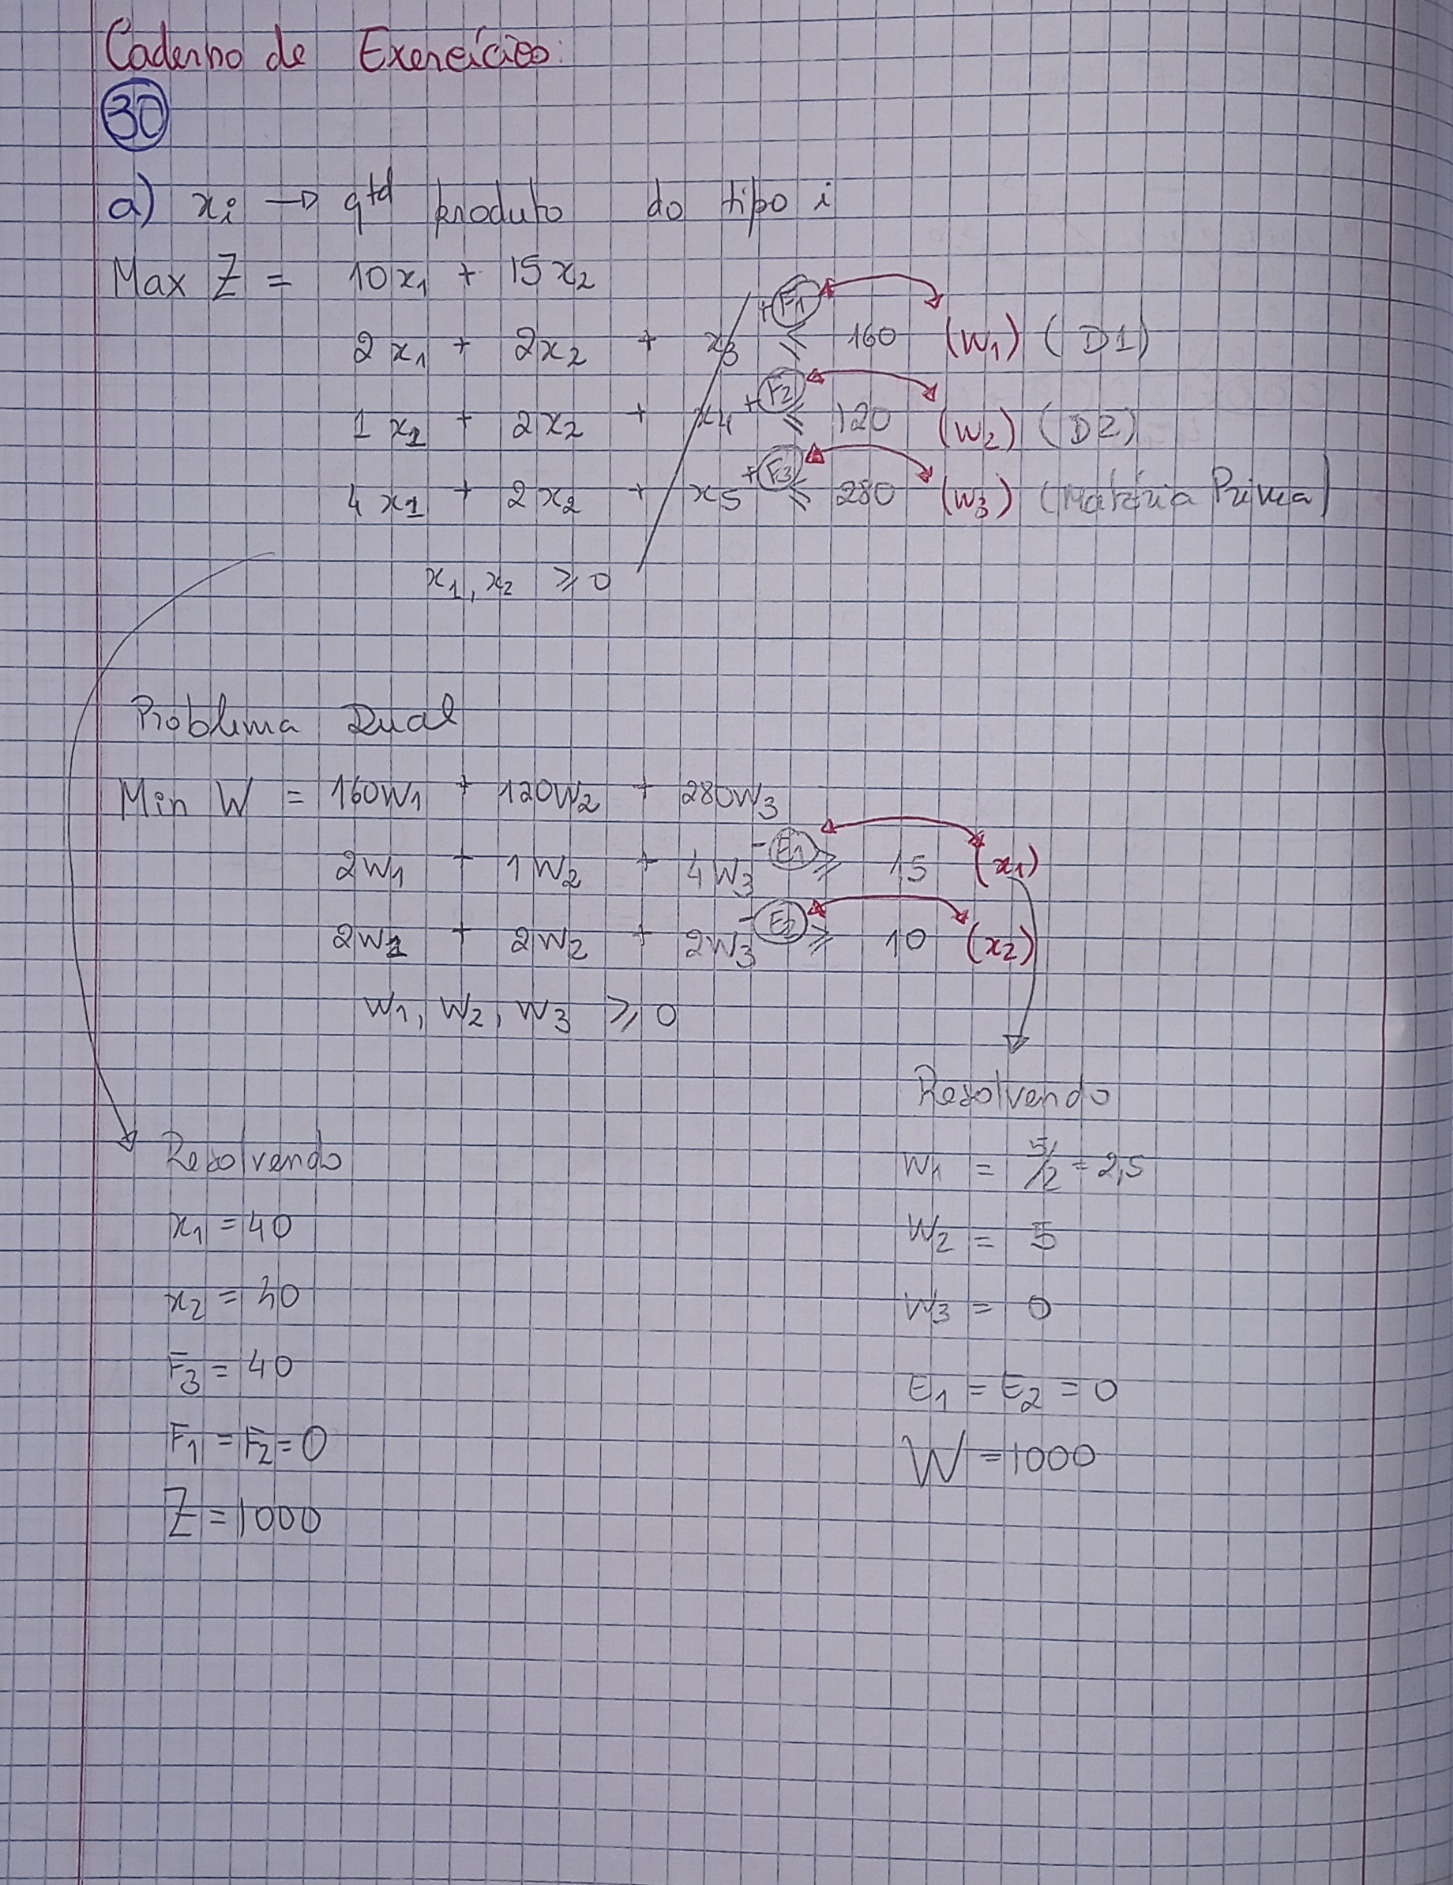 Caderno de Exercícios:
30
a) xi → qtd produto do tipo i
Max Z = 10x1 + 15x2
2x1 + 2x2 + x3 +F1 ≤ 160 (W1) (D1)
1x1 + 2x2 + x4 +F2 ≤ 120 (W2) (D2)
4x1 + 2x2 + x5 +F3 ≤ 280 (W3) (Matéria Prima)
x1, x2 ≥ 0
Problema Dual
Min W = 160W1 + 120W2 + 280W3
2W1 + 1W2 + 4W3 -E1 ≥ 15 (x1)
2W1 + 2W2 + 2W3 -E2 ≥ 10 (x2)
W1, W2, W3 ≥ 0
Resolvendo
x1 = 40
x2 = 40
F3 = 40
F1 = F2 = 0
Z = 1000
Resolvendo
W1 = 5/2 = 2,5
W2 = 5
W3 = 0
E1 = E2 = 0
W = 1000